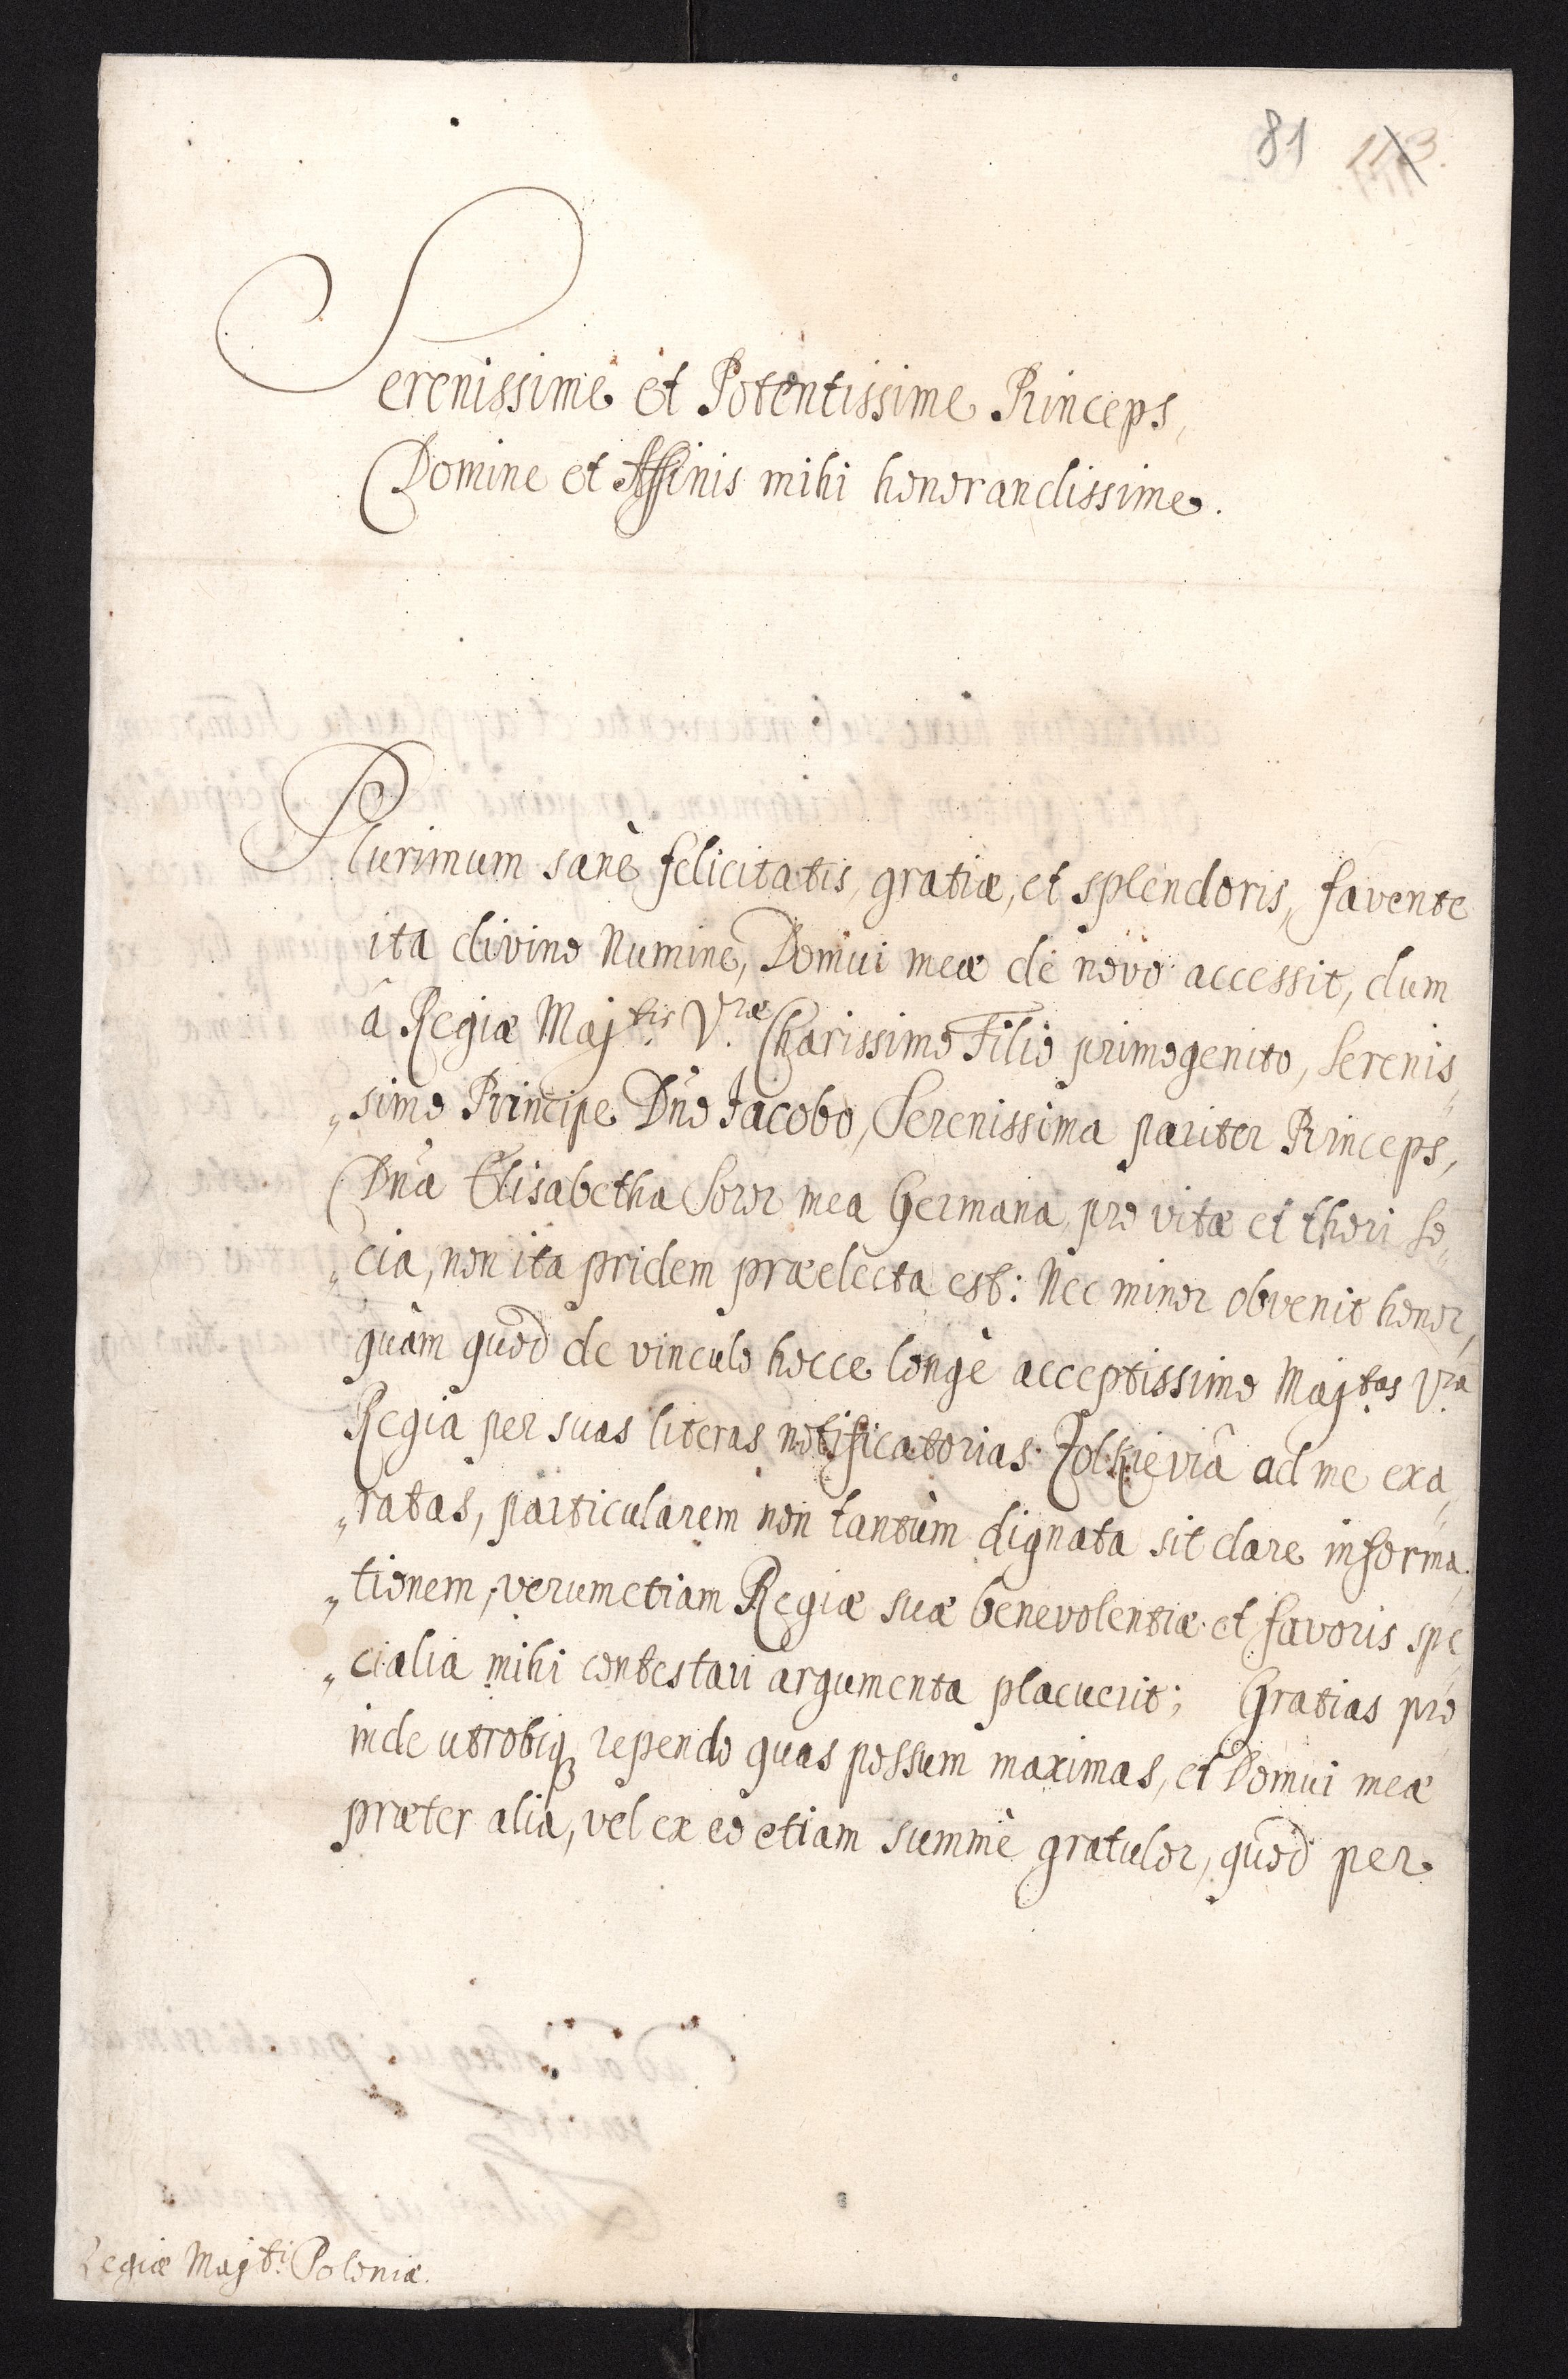 81 113.
Serenissime et Potentissime Princeps,
Domine et Affinis mihi honorandissime.
Plurimum sanè felicitatis, gratiæ, et splendoris, favente
ita divino Numine, Domui meæ de novo accessit, dum
â Regiæ Maj.tis V.ræ Charissimo Filio primogenito, Serenis„
„simo Principe Dño Jacobo, Serenissima pariter Princeps,
Dña Elisabetha Soror mea Germana, pro vitæ et thori So„
„cia, non ita pridem præelecta est: Nec minor obvenit honor,
quàm quod de vinculo hocce longè acceptissimo Maj.tas V.ra
Regia per suas literas notificatorias Zolkieviâ ad me exa„
„ratas, particularem non tantùm dignata sit dare informa„
„tionem, verumetiam Regiæ suæ benevolentiæ et favoris spe„
„cialia mihi contestari argumenta placuerit; Gratias pro
inde utrobiq; rependo quas possum maximas, et Domui meæ
præter alia, vel ex eo etiam summè gratulor, quod per
Regiæ Maj.ti Poloniæ.